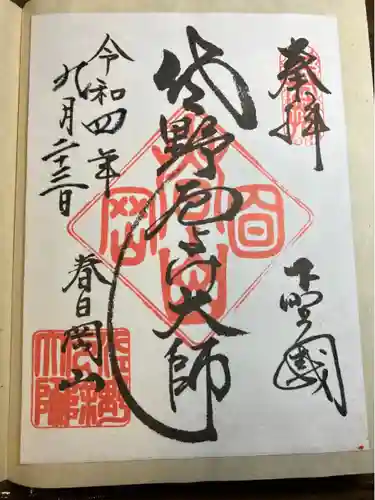 奉拝
下野國
佐野厄よけ大師
令和四年
九月二十三日
春日岡山